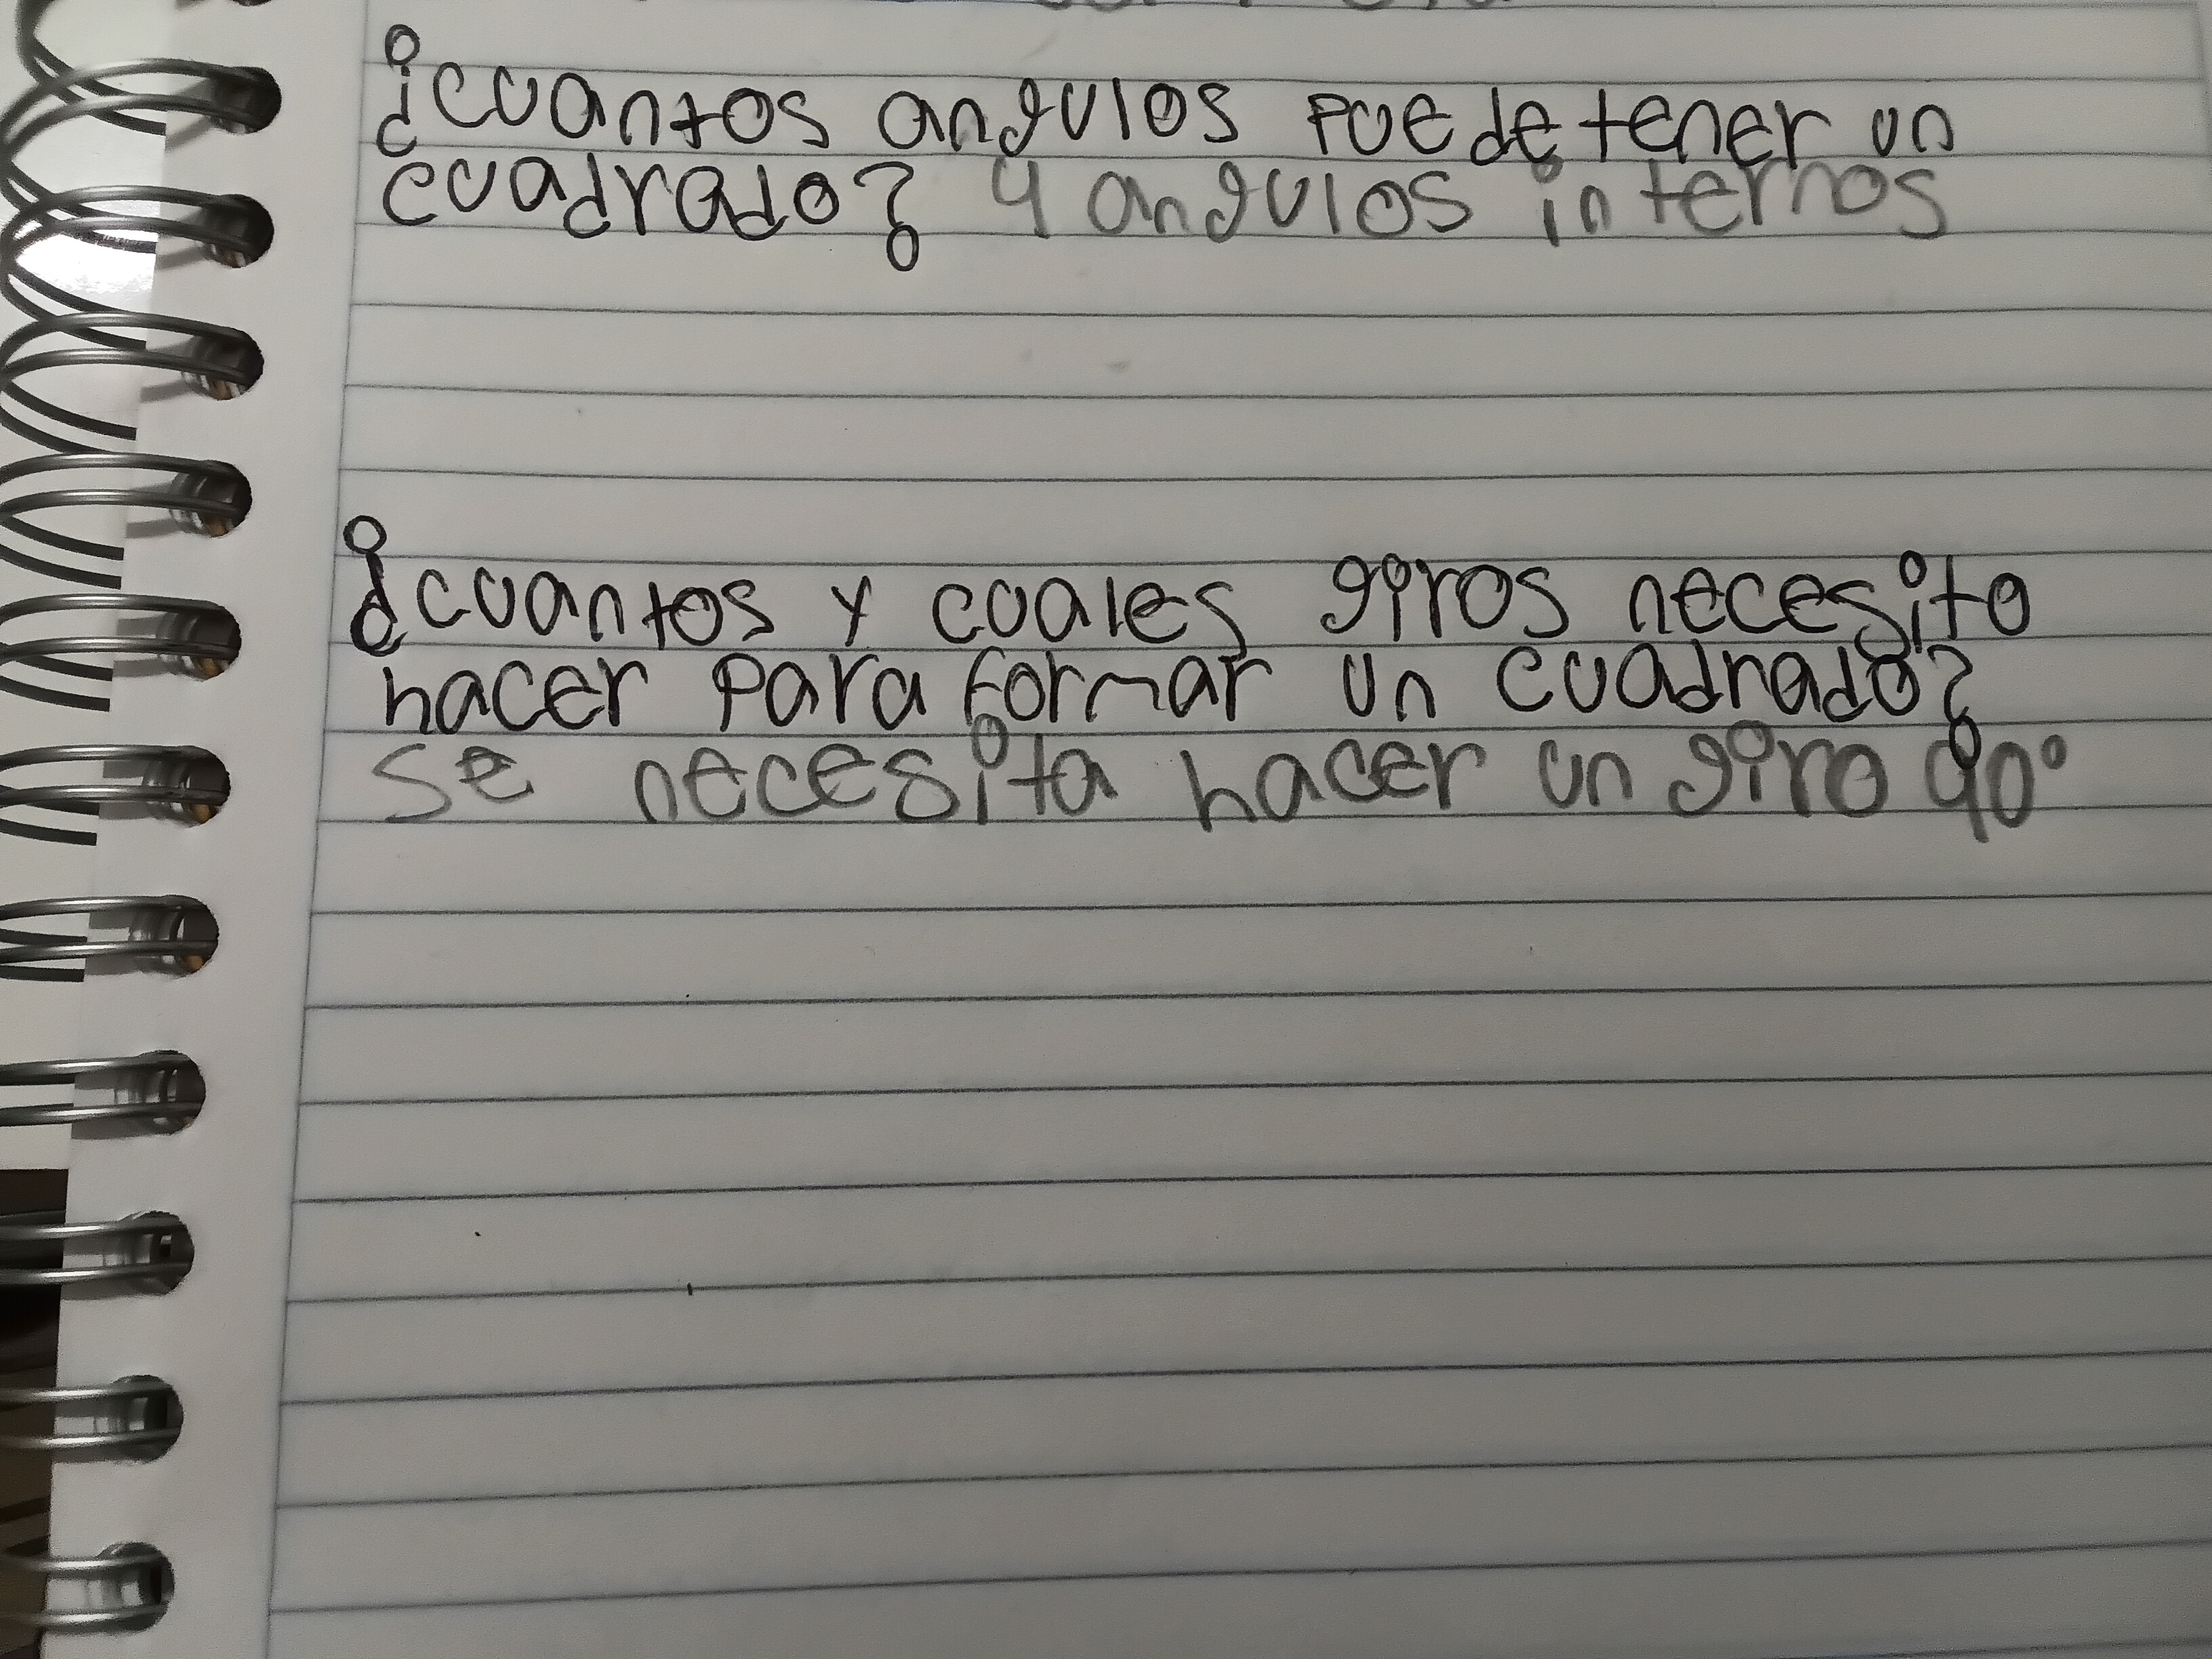 ¿cuantos angulos puede tener un
cuadrado? 4 angulos internos
¿cuantos y cuales giros necesito
hacer para formar un cuadrado?
se necesita hacer un giro 90°